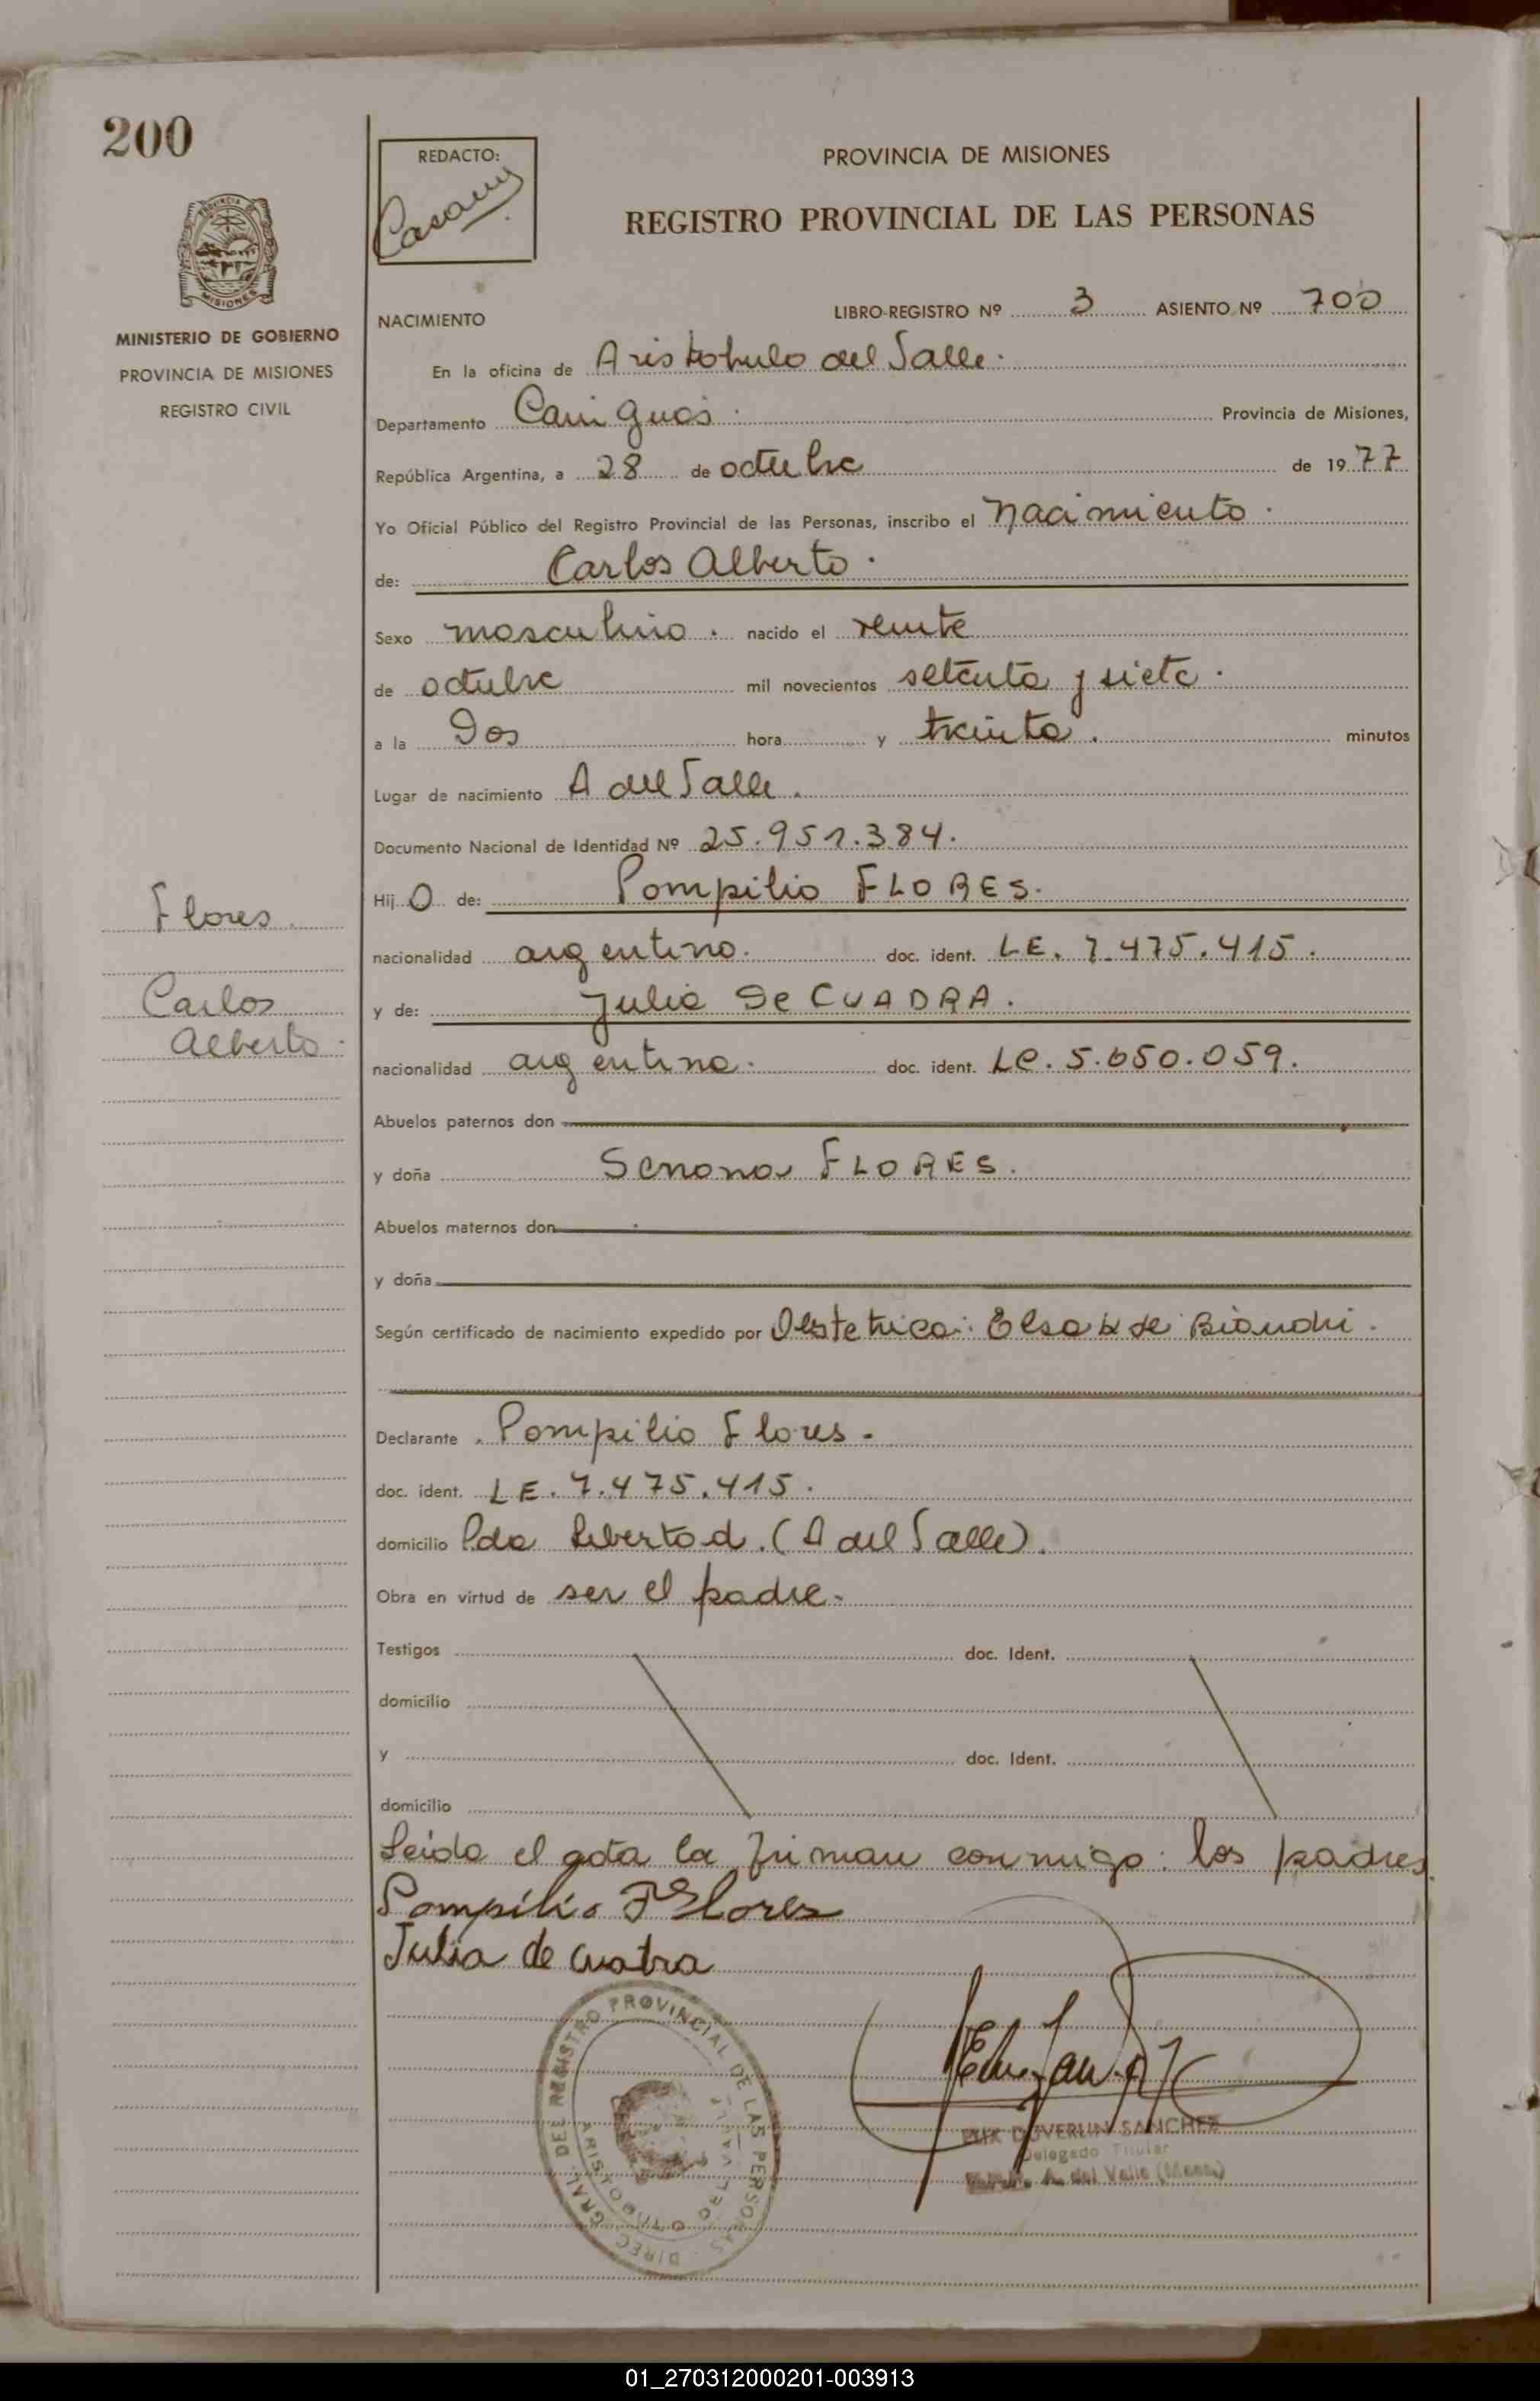 200
REDACTO:
Casany
PROVINCIA DE MISIONES
REGISTRO PROVINCIAL DE LAS PERSONAS
MISIONES
MINISTERIO DE GOBIERNO
PROVINCIA DE MISIONES
REGISTRO CIVIL
NACIMIENTO LIBRO-REGISTRO Nº 3 ASIENTO Nº 700
En la oficina de Aristobulo del Valle.
Departamento Cainguás. Provincia de Misiones,
República Argentina, a 28 de octubre de 1977
Yo Oficial Público del Registro Provincial de las Personas, inscribo el nacimiento.
de: Carlos Alberto.
Sexo masculino. nacido el veinte
de octubre mil novecientos setenta y siete.
a la Dos hora y treinta. minutos
Lugar de nacimiento A del Valle.
Documento Nacional de Identidad Nº 25.951.384.
Hijo de: Pompilio FLORES.
nacionalidad argentino. doc. ident. LE. 7.475.415.
y de: Julia De CUADRA.
nacionalidad argentina. doc. ident. LC. 5.650.059.
Abuelos paternos don
y doña FLORES.
Abuelos maternos don
y doña
Según certificado de nacimiento expedido por Obstetrica: Elsa de Bianchi.
Declarante Pompilio Flores.
doc. ident. LE. 7.475.415.
domicilio Pda Libertad. (A del Valle).
Obra en virtud de ser el padre.
Testigos doc. Ident.
domicilio
y doc. Ident.
domicilio
Leida el acta la firman conmigo: los padres
Pompilio Flores
Julia de cuatra
Flores
Carlos
Alberto.
DIREC. GRAL. DEL REGISTRO PROVINCIAL DE LAS PERSONAS
ARISTOBULO DEL VALLE
DUVERLIN SANCHEZ
Delegado Titular
A. del Valle (Mnes.)
01_270312000201-003913